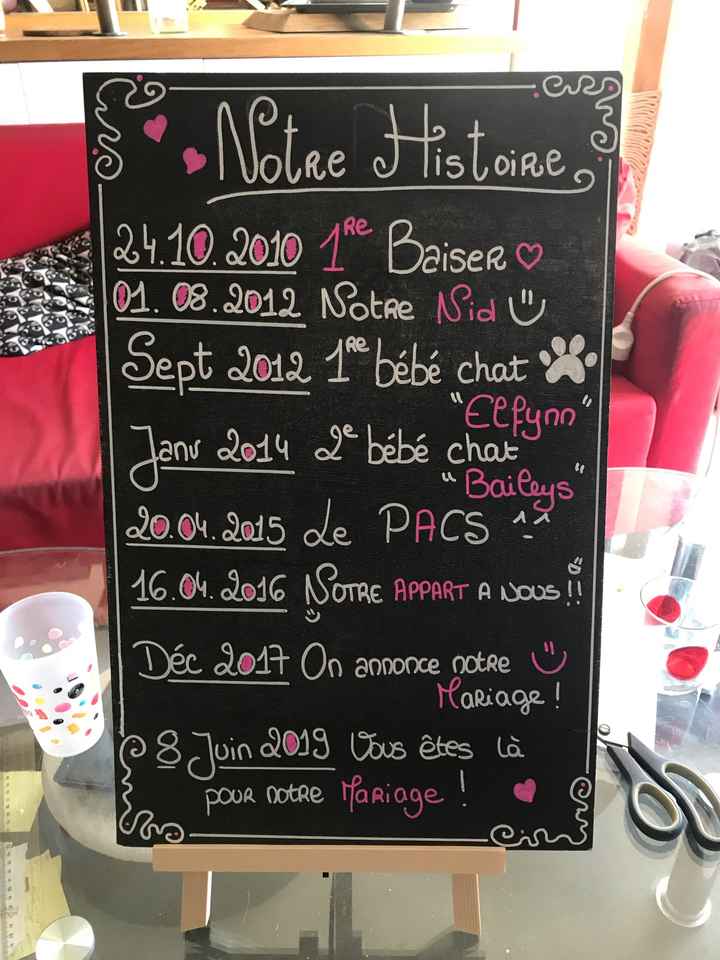 Notre Histoire
24.10.2010 1re Baiser ♡
01.08.2012 Notre Nid
Sept 2012 1re bébé chat
"Elfynn"
Janv 2014 2e bébé chat
"Baileys"
20.04.2015 Le PACS ^-^
16.04.2016 Notre APPART A NOUS !!
Déc 2017 On annonce notre
Mariage !
8 Juin 2019 Vous êtes là
pour notre Mariage !